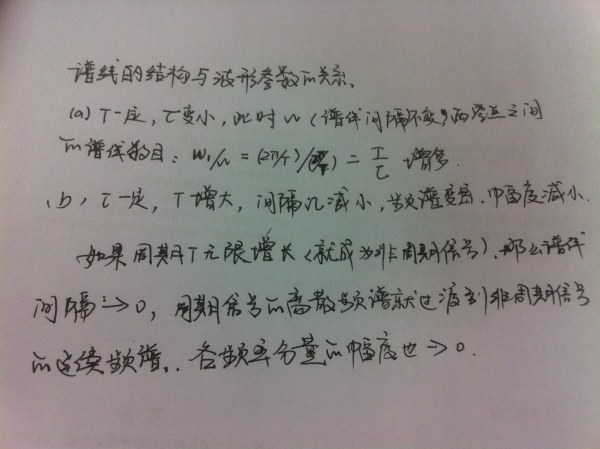 谱线的结构与波形参数的关系、
(a) T一定，τ变小，此时Ω（谱线间隔不变）两零点之间
的谱线数目：W₁/Ω = (2π/τ)/ = T/τ 增多.
(b) τ一定，T增大，间隔Ω减小，频谱变密. 幅度减小.
如果周期T无限增长（就成为非周期信号）. 那么谱线
间隔→0，周期信号的离散频谱就过渡到非周期信号
的连续频谱.. 各频率分量的幅度也→0.